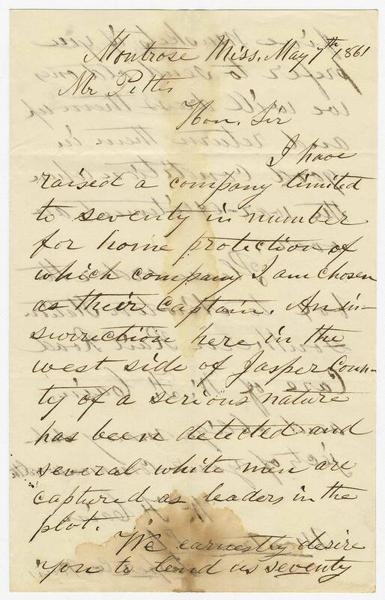 Montrose Miss, May 7th, 1861
Mr Pettus
Hon. Sir
I have
raised a company limited
to seventy in number
for home protection of
which company I am chosen
as their captain. An in-
surrection here in the
west side of Jasper Coun-
ty of a serious nature
has been detected and
several white men are
captured as leaders in the
plot.
We earnestly desire
you to send us seventy